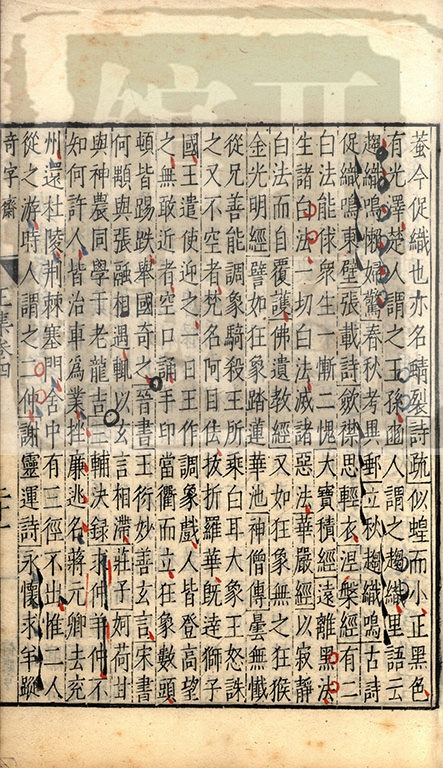 蓋今促織也亦名蜻裂詩疏似蝗而小正黑色
有光澤楚人謂之王孫幽人謂之趨織里語云
趨織鳴懶婦驚春秋考異郵立秋趨織鳴古詩
促織鳴東壁張載詩斂襟思輕衣涅槃經有二
白法能俅衆生一慚二愧大寶積經遠離黑法
生諸白法一切白法滅諸惡法華嚴經以寂靜
白法而自覆護佛遺敎經又如狂象無之狂猴
金光明經譬如狂象踏蓮華池神僧傳曇無懺
從兄善能調象騎殺王所乘白耳大象王怒誅
之又不空者梵名阿目佉拔折羅華旣逹獅子
國王遣使迎之一日王作調象戲人皆登高望
之無敢近者空口誦手印當衢而立狂象數頭
頓皆踢跌舉國奇之晉書王衍妙善玄言宋書
何顒與張融相遇輒以玄言相滯莊子妸荷甘
與神農同學于老龍吉三輔決録求仲羊仲不
如何許人皆治車爲業挫廉逃名蔣元卿去兖
州還杜陵荆棘塞門舍中有三徑不出惟二人
從之游時人謂之二仲謝靈運詩永懷求羊蹤
奇字齋
王集卷四